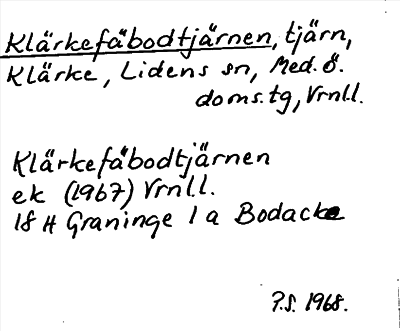 Klärkefäbodtjärnen, tjärn,
Klärke, Lidens sn, Med. ö.
doms.tg, Vrnl.l.
Klärkefäbodtjärnen
ek (1967) Vrnl.l.
18 H Graninge 1 a Bodacke
P.S. 1968.